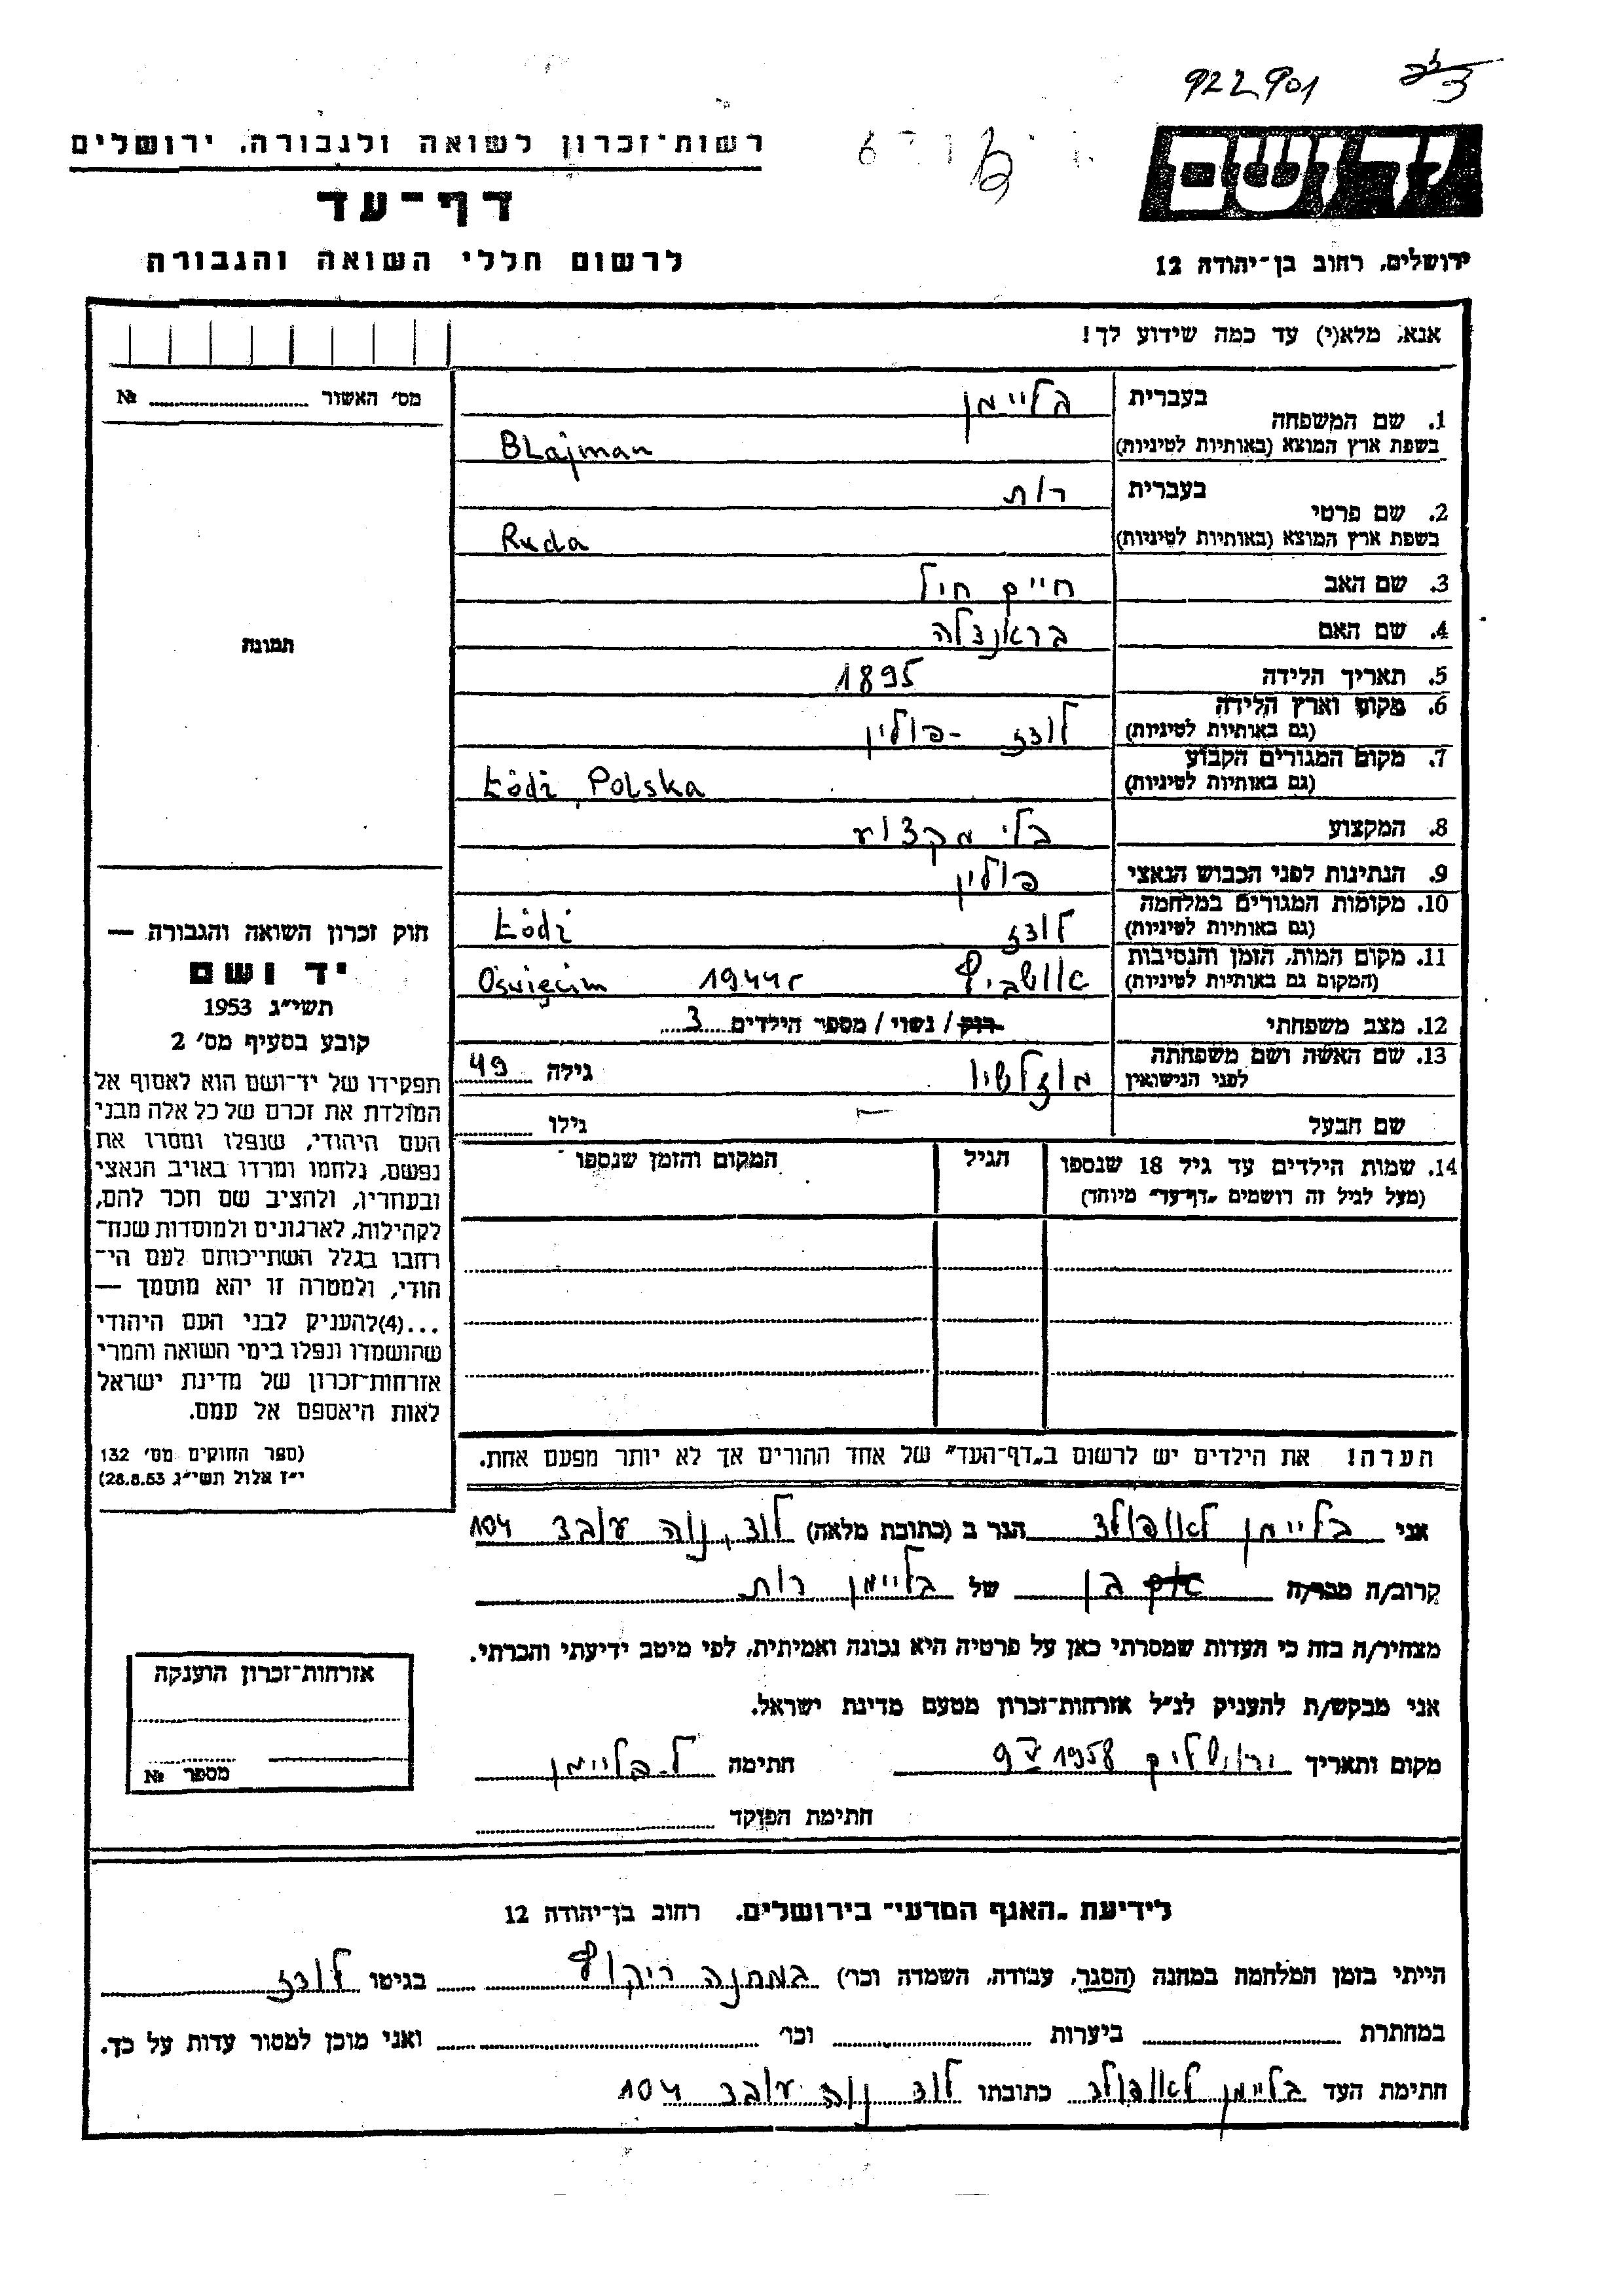 922901
יד ושם
רשות־זכרון לשואה ולגבורה, ירושלים
דף־עד
ירושלים, רחוב בן־יהודה 12
לרשום חללי השואה והגבורה
אנא, מלא(י) עד כמה שידוע לך!
מס׳ האשור № ........
1. שם המשפחה בעברית בליימן
בשפת ארץ המוצא (באותיות לטיניות) BLajman
2. שם פרטי בעברית רות
בשפת ארץ המוצא (באותיות לטיניות) Ruda
3. שם האב חיים חיל
4. שם האם בראנדלה
5. תאריך הלידה 1895
6. מקום וארץ הלידה (גם באותיות לטיניות) לודז - פולין
7. מקום המגורים הקבוע (גם באותיות לטיניות) Łódź, Polska
8. המקצוע בלי מקצוע
9. הנתינות לפני הכבוש הנאצי פולין
10. מקומות המגורים במלחמה (גם באותיות לטיניות) לודז Łódź
11. מקום המות, הזמן והנסיבות (המקום גם באותיות לטיניות) אושביץ 1944r Oświęcim
12. מצב משפחתי רוק / נשוי / מספר הילדים 3
13. שם האשה ושם משפחתה לפני הנישואין גילה 49
שם הבעל גילו ........
14. שמות הילדים עד גיל 18 שנספו הגיל המקום והזמן שנספו
(מעל לגיל זה רושמים „דף־עד״ מיוחד)
תמונה
חוק זכרון השואה והגבורה —
יד ושם
תשי״ג 1953
קובע בסעיף מס׳ 2
תפקידו של יד־ושם הוא לאסוף אל
המולדת את זכרם של כל אלה מבני
העם היהודי, שנפלו ומסרו את
נפשם, נלחמו ומרדו באויב הנאצי
ובעוזריו, ולהציב שם וזכר להם,
לקהילות, לארגונים ולמוסדות שנח־
רבו בגלל השתייכותם לעם הי־
הודי, ולמטרה זו יהא מוסמך —
...(4)להעניק לבני העם היהודי
שהושמדו ונפלו בימי השואה והמרי
אזרחות־זכרון של מדינת ישראל
לאות היאספם אל עמם.
(ספר החוקים מס׳ 132
י״ז אלול תשי״ג 28.8.53)
הערה! את הילדים יש לרשום ב„דף־העד״ של אחד ההורים אך לא יותר מפעם אחת.
אני בליימן לאופולד הגר ב (כתובת מלאה) לוד, נוה עובד 104
קרוב/ה מכר/ה בן של בליימן רות
מצהיר/ה בזה כי העדות שמסרתי כאן על פרטיה היא נכונה ואמיתית, לפי מיטב ידיעתי והכרתי.
אני מבקש/ת להעניק לנ״ל אזרחות־זכרון מטעם מדינת ישראל.
מקום ותאריך ירושלים 9 V 1958 חתימה ל. בליימן
חתימת הפוקד ........
אזרחות־זכרון הוענקה
מספר №
לידיעת „האגף המדעי״ בירושלים, רחוב בן־יהודה 12
הייתי בזמן המלחמה במחנה (הסגר, עבודה, השמדה וכו׳) במחנה בגיטו לודז
במחתרת ........ ביערות ........ וכו׳ ........ ואני מוכן למסור עדות על כך.
חתימת העד בליימן לאופולד כתובתו לוד נוה עובד 104